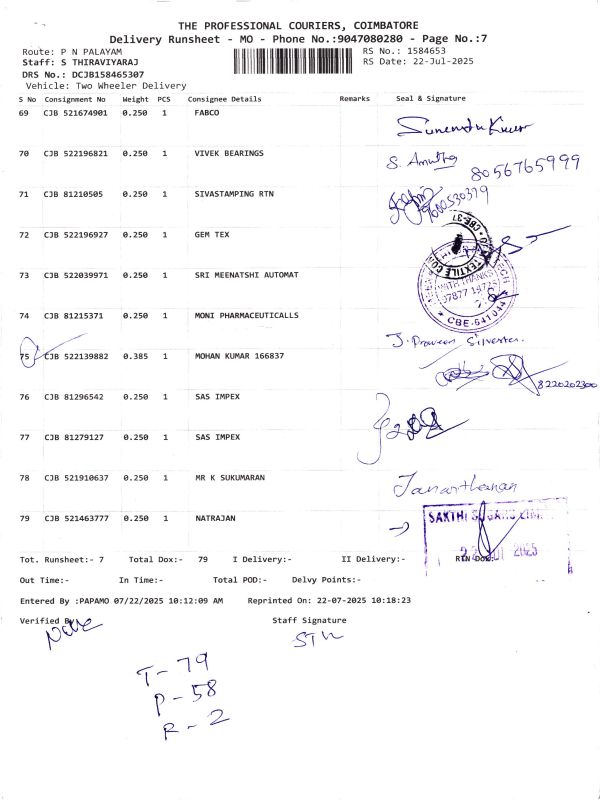 THE PROFESSIONAL COURIERS, COIMBATORE
Delivery Runsheet - MO - Phone No.:9047080280 - Page No.:7
Route: P N PALAYAM
RS No.: 1584653
Staff: S THIRAVIYARAJ
RS Date: 22-Jul-2025
DRS No.: DCJB158465307
Vehicle: Two Wheeler Delivery
S No Consignment No Weight PCS Consignee Details Remarks Seal & Signature
69 CJB 521674901 0.250 1 FABCO
70 CJB 522196821 0.250 1 VIVEK BEARINGS S. Anutha 8056765999
71 CJB 81210505 0.250 1 SIVASTAMPING RTN 9600530379
72 CJB 522196927 0.250 1 GEM TEX
73 CJB 522039971 0.250 1 SRI MEENATSHI AUTOMAT
WITH THANKS
CBE-641044
74 CJB 81215371 0.250 1 MONI PHARMACEUTICALLS J. Praveen Silvester
75 CJB 522139882 0.385 1 MOHAN KUMAR 166837 8220202300
76 CJB 81296542 0.250 1 SAS IMPEX
77 CJB 81279127 0.250 1 SAS IMPEX
78 CJB 521910637 0.250 1 MR K SUKUMARAN Janarthanan
79 CJB 521463777 0.250 1 NATRAJAN SAKTHI SUGARS
Tot. Runsheet:- 7 Total Dox:- 79 I Delivery:- II Delivery:- RTN Dox:-
Out Time:- In Time:- Total POD:- Delvy Points:-
Entered By :PAPAMO 07/22/2025 10:12:09 AM Reprinted On: 22-07-2025 10:18:23
Verified By Staff Signature
T - 79
P - 58
R - 2